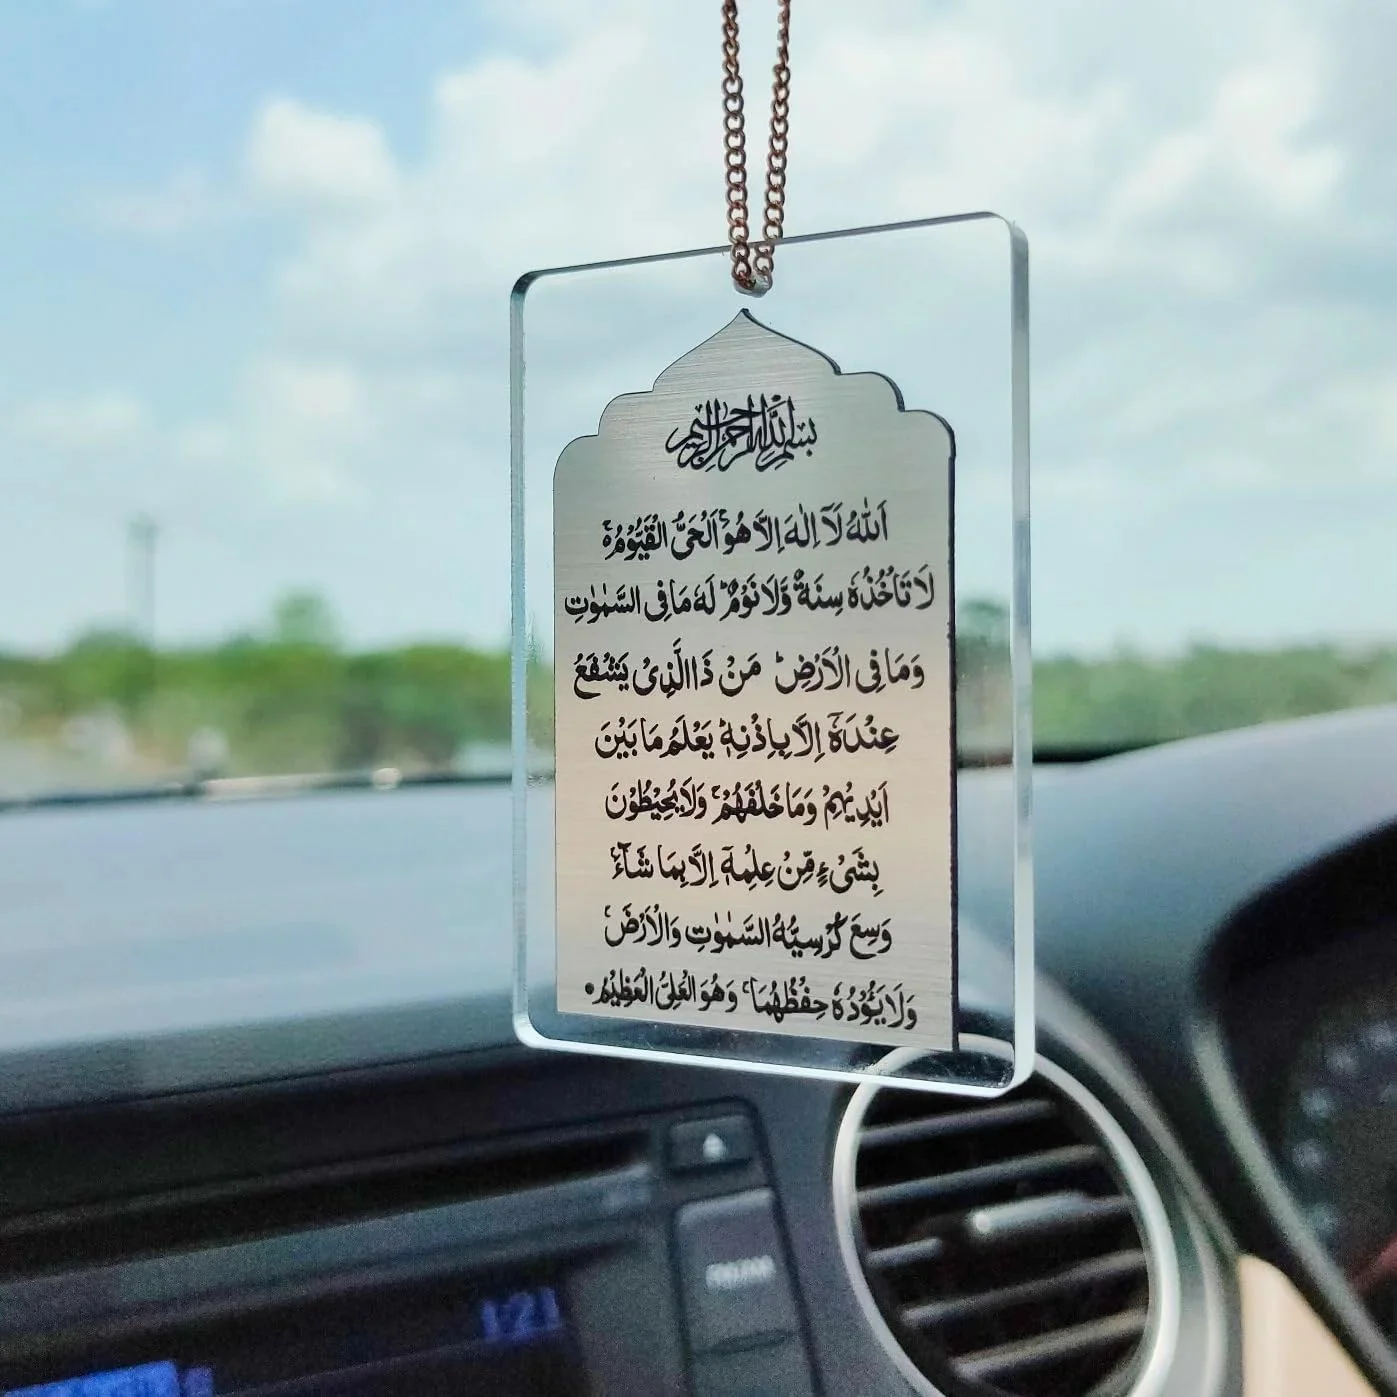 بسم الله الرحمن الرحيم
اَللّٰهُ لَآ اِلٰهَ اِلَّا هُوَ ۚ اَلْحَىُّ الْقَيُّوْمُ ۚ
لَا تَاْخُذُهٗ سِنَةٌ وَّلَا نَوْمٌ ؕ لَهٗ مَا فِى السَّمٰوٰتِ
وَمَا فِى الْاَرْضِ ؕ مَنْ ذَا الَّذِىْ يَشْفَعُ
عِنْدَهٗٓ اِلَّا بِاِذْنِهٖ ؕ يَعْلَمُ مَا بَيْنَ
اَيْدِيْهِمْ وَمَا خَلْفَهُمْ ۚ وَلَا يُحِيْطُوْنَ
بِشَىْءٍ مِّنْ عِلْمِهٖٓ اِلَّا بِمَا شَآءَ ۚ
وَسِعَ كُرْسِيُّهُ السَّمٰوٰتِ وَالْاَرْضَ ۚ
وَلَا يَئُوْدُهٗ حِفْظُهُمَا ۚ وَهُوَ الْعَلِىُّ الْعَظِيْمُ
1:21